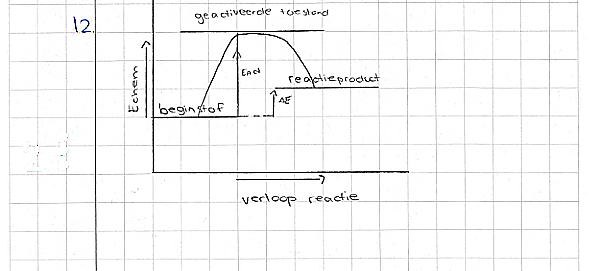 12.
geactiveerde toestand
Eact
reactieproduct
ΔE
beginstof
Echem
verloop reactie